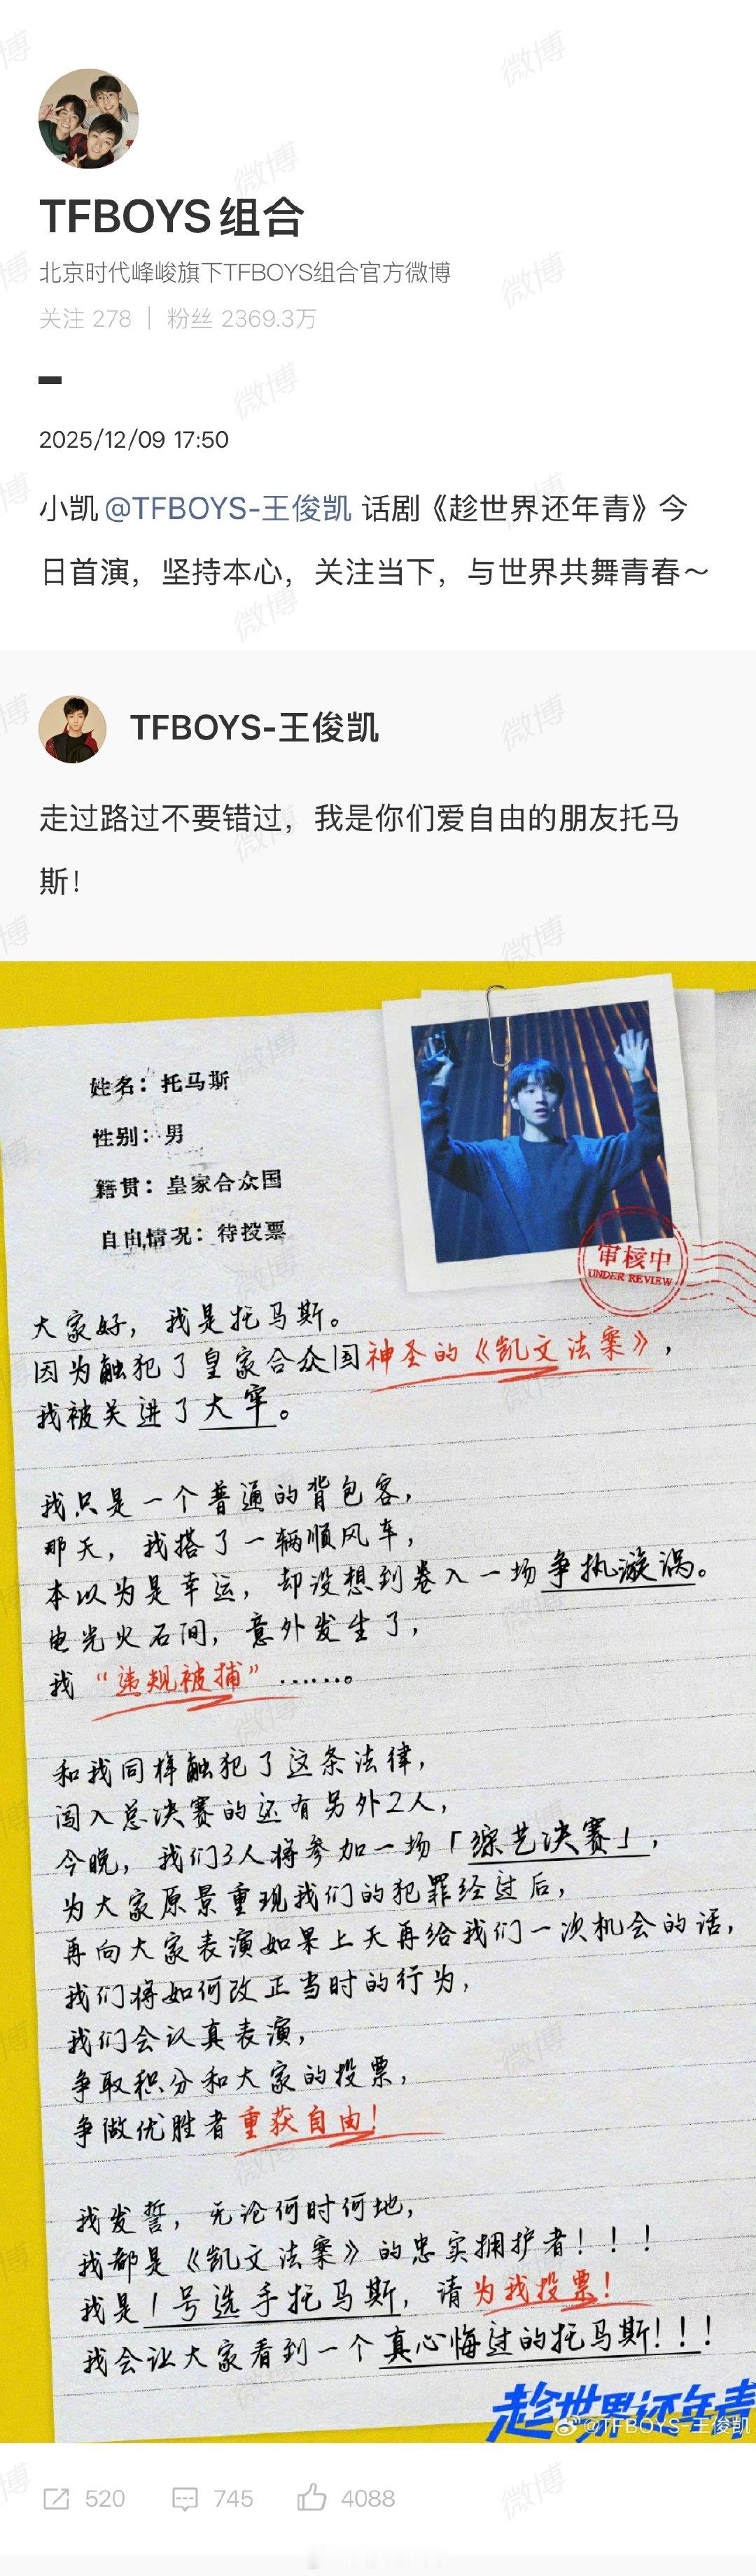 TFBOYS组合
北京时代峰峻旗下TFBOYS组合官方微博
关注 278 | 粉丝 2369.3万
2025/12/09 17:50
小凯@TFBOYS-王俊凯 话剧《趁世界还年青》今
日首演，坚持本心，关注当下，与世界共舞青春～
TFBOYS-王俊凯
走过路过不要错过，我是你们爱自由的朋友托马
斯！
姓名：托马斯
性别：男
籍贯：皇家合众国
自由情况：待投票
审核中
UNDER REVIEW
大家好，我是托马斯。
因为触犯了皇家合众国神圣的《凯文法案》，
我被关进了大牢。
我只是一个普通的背包客，
那天，我搭了一辆顺风车，
本以为是幸运，却没想到卷入一场争执漩涡。
电光火石间，意外发生了，
我“违规被捕”……。
和我同样触犯了这条法律，
闯入总决赛的还有另外2人，
今晚，我们3人将参加一场「综艺决赛」，
为大家原景重现我们的犯罪经过后，
再向大家表演如果上天再给我们一次机会的话，
我们将如何改正当时的行为，
我们会认真表演，
争取积分和大家的投票，
争做优胜者重获自由！
我发誓，无论何时何地，
我都是《凯文法案》的忠实拥护者！！！
我是1号选手托马斯，请为我投票！
我会让大家看到一个真心悔过的托马斯！！！
趁世界还年青
@TFBOYS-王俊凯
520 745 4088
微博